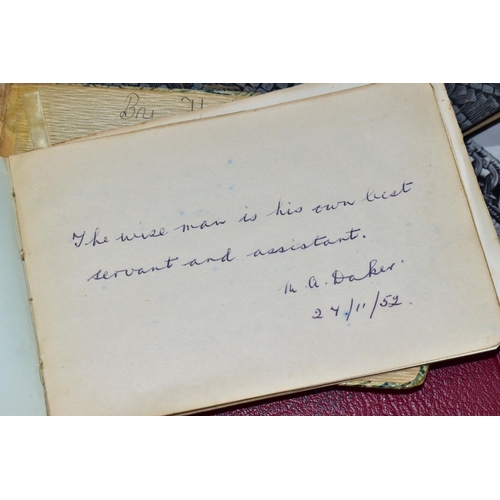 The wise man is his own best
servant and assistant.
M. A. Daker.
27/11/52.